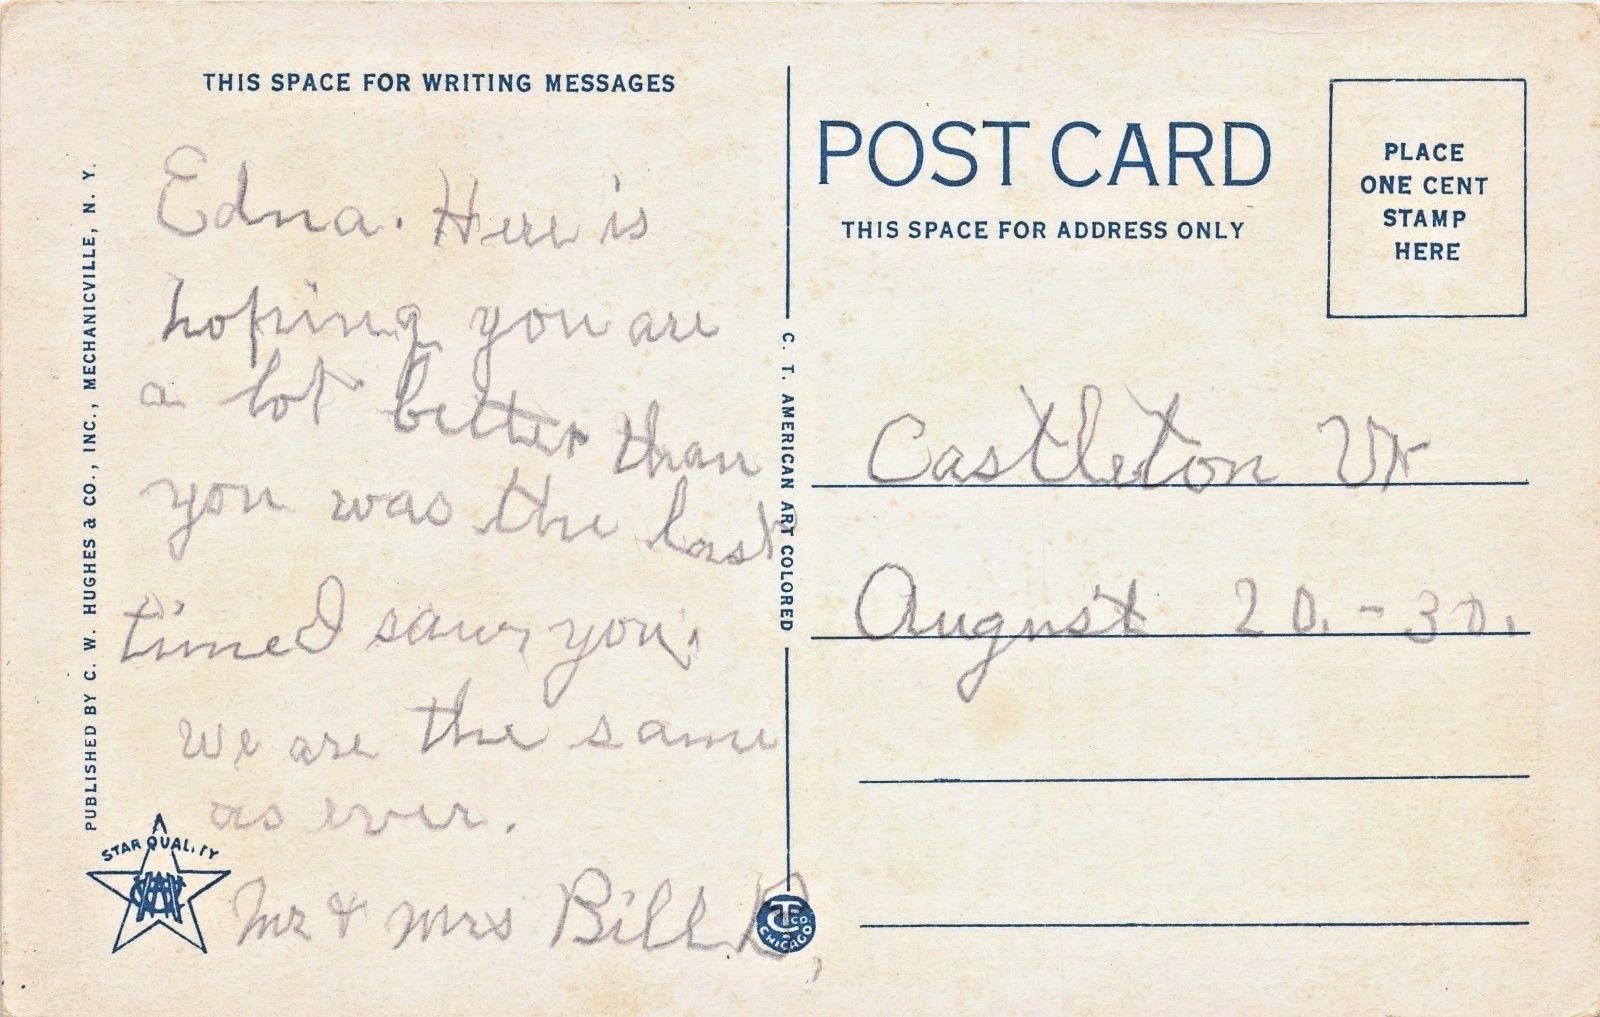 THIS SPACE FOR WRITING MESSAGES
Edna. Here is
hoping you are
a lot better than
you was the last
time I saw you.
we are the same
as ever.
Mr & Mrs Bill B,
PUBLISHED BY C. W. HUGHES & CO., INC., MECHANICVILLE, N. Y.
STAR QUALITY
C. T. AMERICAN ART COLORED
C T CO. CHICAGO
POST CARD
THIS SPACE FOR ADDRESS ONLY
PLACE
ONE CENT
STAMP
HERE
Castleton Vt
August 20.-30.